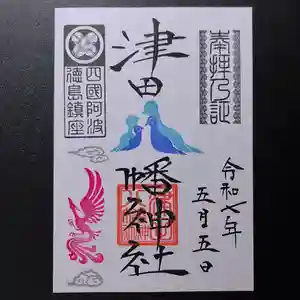 奉拝乃証
津田八幡神社
四國阿波
徳島鎮座
令和七年
五月五日